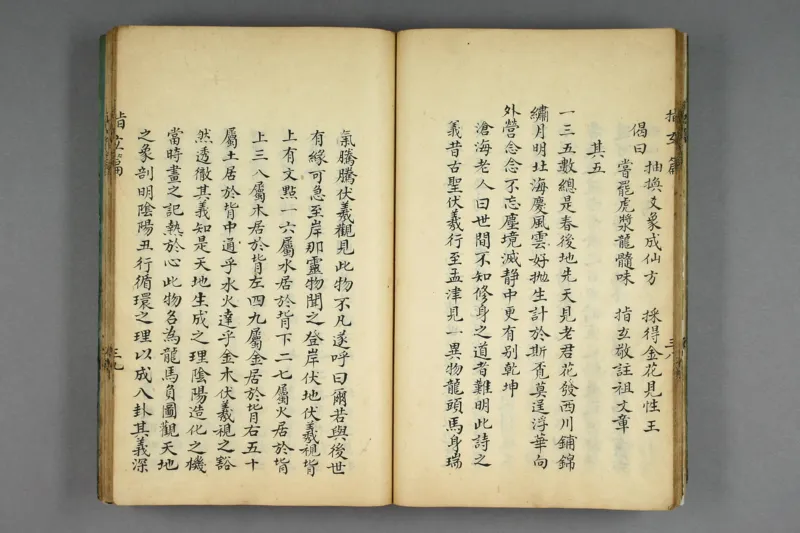 指玄篇
三八
偈曰
抽換爻象成仙方 採得金花見性王
嘗罷虎漿龍髓味 指玄敬註祖文章
其五
一三五數總是春後地先天見老君花發西川鋪錦
繡月明北海慶風雲好拋生計於斯覓莫逞浮華向
外營念念不忘塵境滅静中更有別乾坤
滄海老人曰世間不知修身之道者難明此詩之
義昔古聖伏羲行至孟津見一異物龍頭馬身瑞
氣騰騰伏羲觀見此物不凡遂呼曰爾若與後世
有緣可急至岸那靈物聞之登岸伏地伏羲視背
上有文點一六屬水居於背下二七屬火居於背
上三八屬木居於背左四九屬金居於背右五十
屬土居於背中通乎水火達乎金木伏羲視之豁
然透徹其義知是天地生成之理陰陽造化之機
當時畫之記熱於心此物名為龍馬負圖觀天地
之象剖明陰陽五行循環之理以成八卦其義深
指玄篇
三九